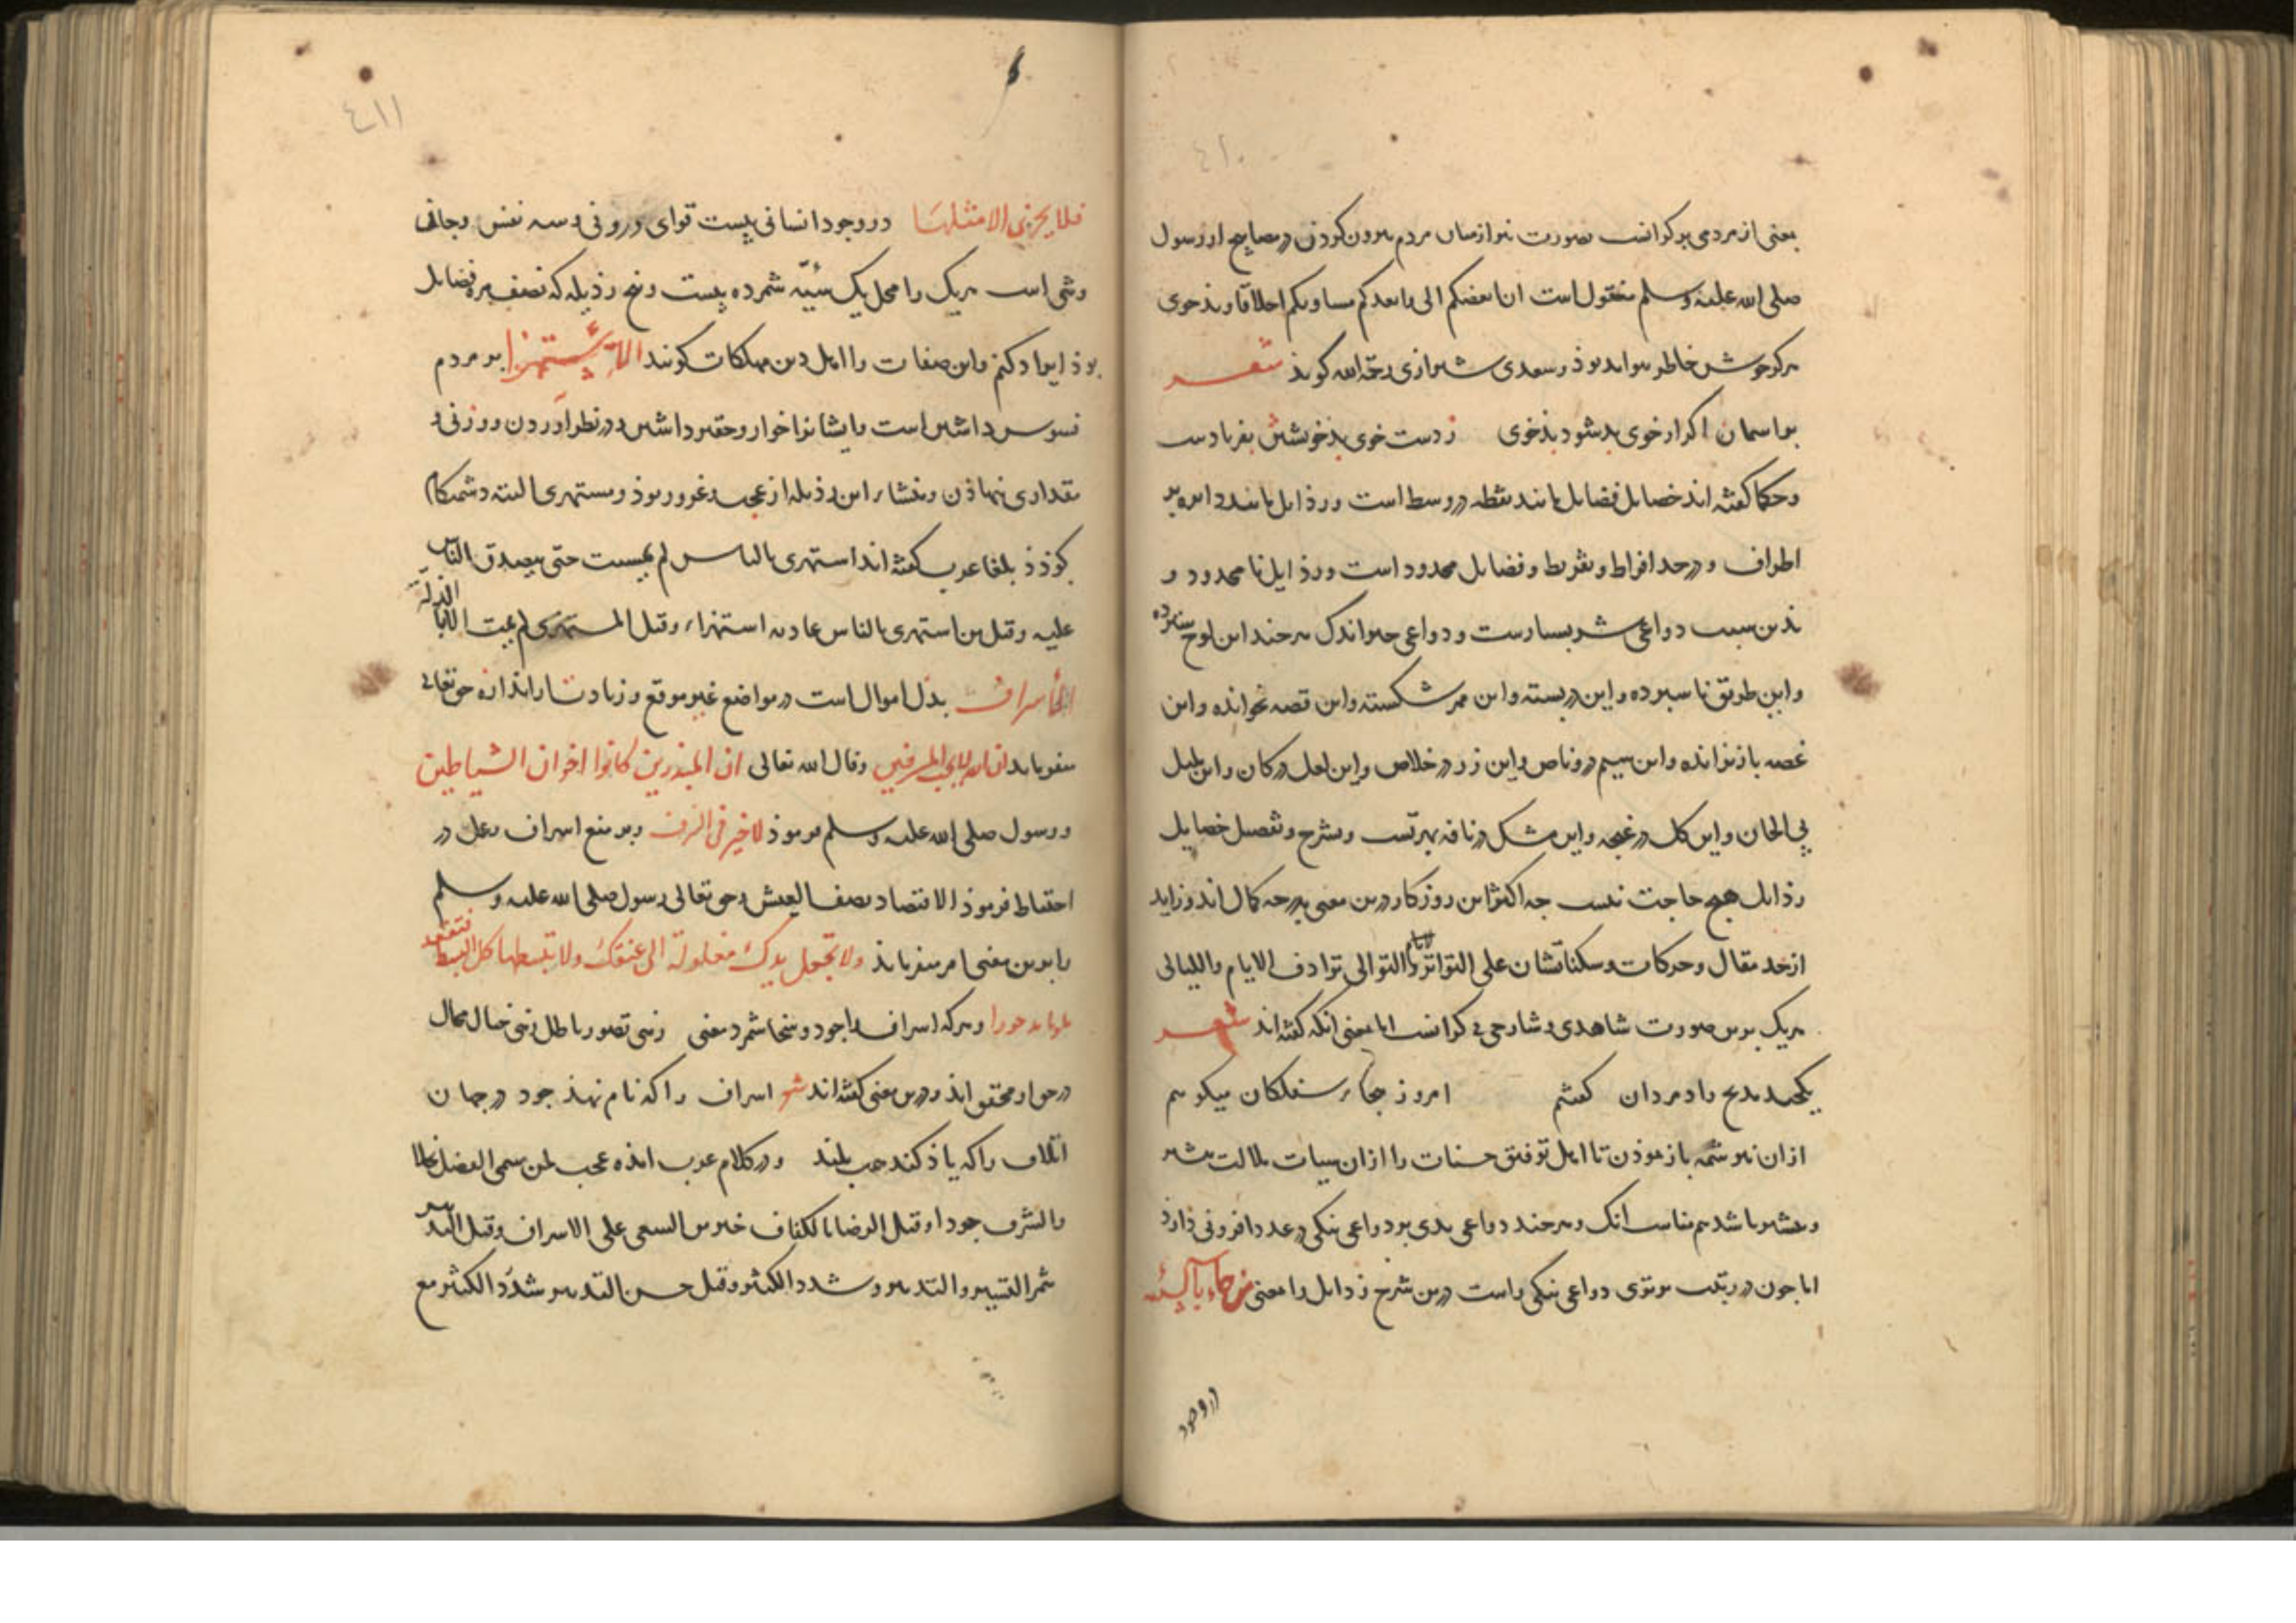 ٤١٠
یعنی از مردمی بر کرانست بصورت نیز از میان مردم بیرون کردن در مصابیح از رسول
صلی الله علیه وسلم منقول است ان ابغضکم الی و ابعدکم مساویکم اخلاقا و بدخوی
هرکز خوش خاطر نتواند بوذ و سعدی شیرازی رحمة الله کوید شعر
بر اسمان اکر از خوی بد شود بدخوی ز دست خوی بد خویشتن بفریادست
و حکما کفته اند خصایل فضایل مانند نقطه در وسط است و رذایل مانند دایره بر
اطراف و در حد افراط و تفریط و فضایل محدود است و رذایل نا محدود و
بدین سبب دواعی شر بسیارست و دواعی خیر اندک هر چند این لوح سترده
و این طریق نا سپرده و این در بسته و این مهر شکسته و این قصه نخوانده و این
غصه باز نرانده و این سیم در رصاص و این زر در خلاص و این لعل در کان و این بلبل
بی الحان و این کل در غنچه و این مشک در نافه بهترست و بشرح و تفصیل خصایل
رذایل هیچ حاجت نیست چه اکثر این روزکار درین معنی بدرجه کمال اند و زاید
از حد مقال و حرکات و سکناتشان علی التواتر و التوالی ترادف الایام واللیالی
هریک برین صورت شاهدی و شارحی بی کرانست اما بمعنی انکه کفته اند شعر
یکچند مدیح راد مردان کفتم امروز هجاء سفلکان میکویم
از ان نیز شمه باز نموذن تا اهل توفیق حسنات را از ان سیات ملالت
و باشد هم مناسب انک و هر چند دواعی بدی بر دواعی نیکی در عدد افزونی دارد
اما چون در رتبت برتری دواعی نیکی راست درین شرح رذایل را معنی من جاء بالسیئه
در وجود
٤١١
فلا یجزی الا مثلها در وجود انسانی بیست قوای درونی و سه نفس و جانی
و تنی است هریک را محل یک سیئه شمرده بیست و پنج رذیله که نصف فضایل
بوذ ایراد کنم و این صفات را اهل دین مهلکات کویند الاستهزا بر مردم
فسوس داشتن است و ایشانرا خوار و حقیر داشتن و در نظر اوردن و وزنی و
مقداری ننهاذن و منشاء این رذیله از عجب و غرور بوذ و مستهزی البته دشمنکام
کردد بلغاء عرب کفته اند استهزی بالناس لم یمت حتی یصدق الناس
علیه و قیل من استهزی بالناس عاد به استهزاء و قیل المستهزی لم یمت الا بالذلة
الاسراف بذل اموال است در مواضع غیر موقع و زیادت از اندازه حق تعالی
میفرماید ان الله لا یحب المسرفین وقال الله تعالی ان المبذرین کانوا اخوان الشیاطین
و رسول صلی الله علیه وسلم فرموذ لا خیر فی السرف و بر منع اسراف دخل در
احتیاط فرموذ الاقتصاد نصف العیش و حق تعالی رسول صلی الله علیه وسلم
را بدین معنی امر میفرماید ولا تجعل یدک مغلولة الی عنقک ولا تبسطها کل البسط فتقعد
ملوما محسورا و هرکه اسراف را جود و سخا شمرد معنی زهی تصور باطل زهی خیال محال
در حق او محقق اند و درین معنی کفته اند شعر اسراف را که نام نهذ جود در جهان
اتلاف را که یاذ کند همت بلند و در کلام عرب امده عجب لمن سمی الفضل بخلا
والشرف جودا و قیل الرضا بالکفاف خیر من السعی علی الاسراف و قیل التدبیر
یثمر الیسیر و التبذیر یبدد الکثیر و قیل حسن التدبیر مع